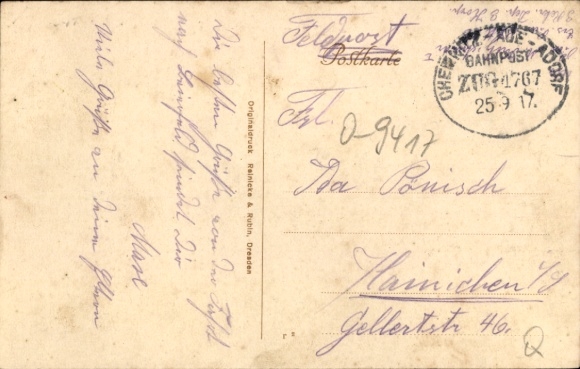 Feldpost
Postkarte
CHEMNITZ - AUE - ADORF
BAHNPOST
ZUG 4767
25.9.17.
Frl.
Da Pönisch
Hainichen i/S
Gellertstr 46.
0-9417
Q
Originaldruck Reinicke & Rubin, Dresden
Die besten Grüße von der Fahrt
nach sendet Dir
Viele Grüße an Deine Eltern